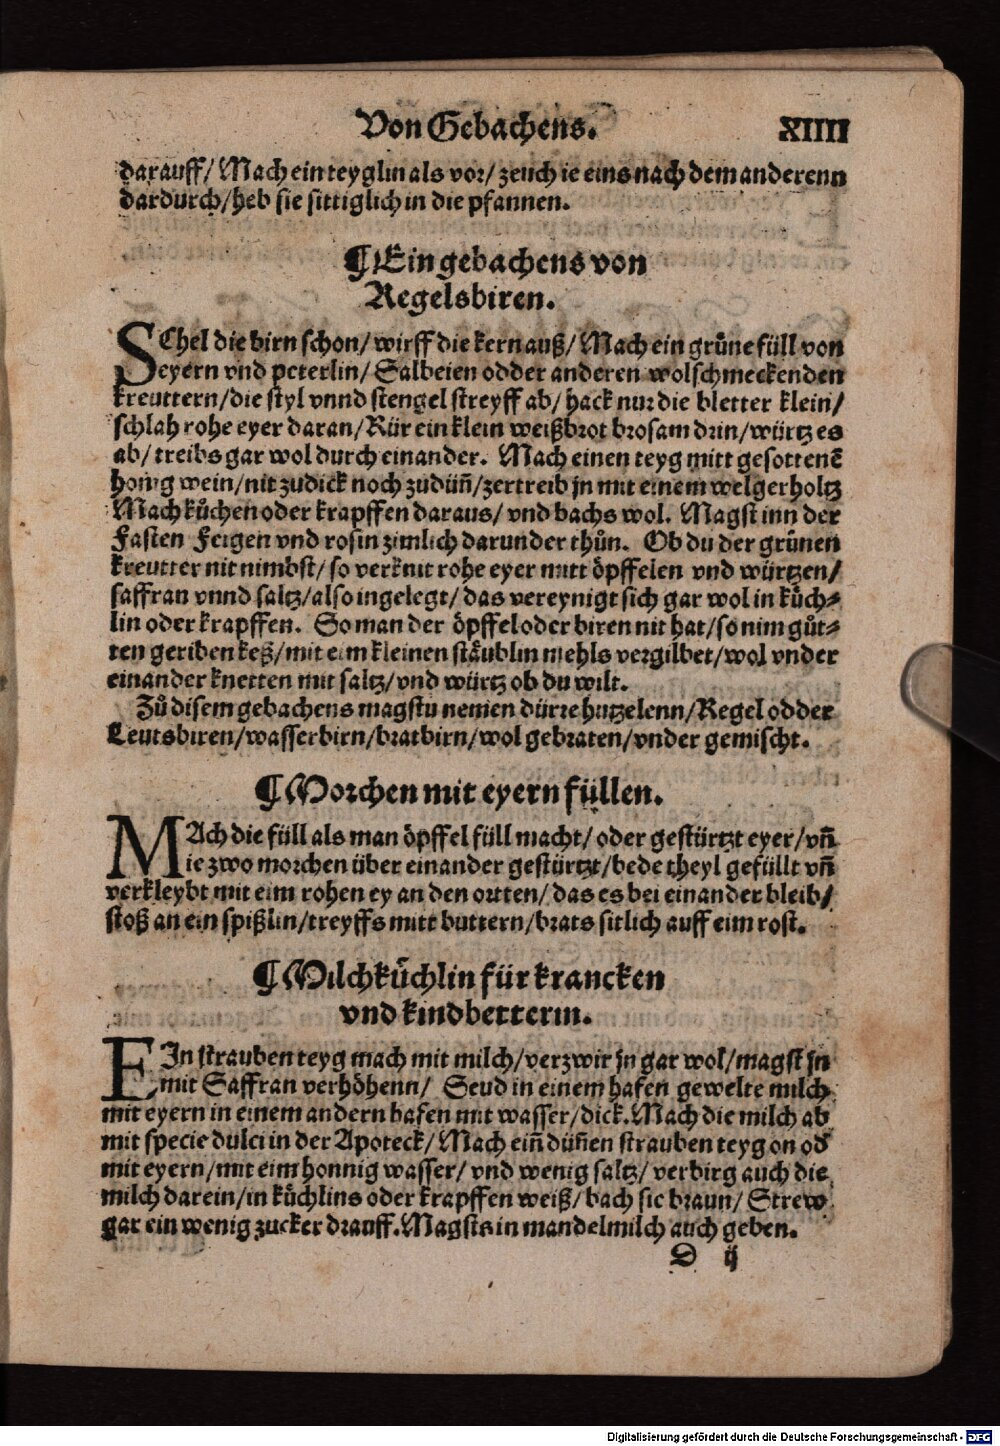 Von Gebachens. XIIII
darauff/ Mach ein teyglin als vor/ zeuch ie eins nach dem anderenn
dardurch/heb sie sittiglich in die pfannen.
¶Ein gebachens von
Regelsbiren.
SChel die birn schon/ wirff die kern auß/ Mach ein grůne füll von
eyern vnd peterlin/ Salbeien odder anderen wolschmeckenden
kreuttern/die styl vnnd stengel streyff ab/ hack nur die bletter klein/
schlah rohe eyer daran/ Rür ein klein weißbrot brosam drin/würtz es
ab/ treibs gar wol durch einander. Mach einen teyg mitt gesottenẽ
honig wein/nit zudick noch zudün̄/zertreib jn mit einem welgerholtz
Mach kůchen oder krapffen daraus/ vnd bachs wol. Magst inn der
Fasten Feigen vnd rosin zimlich darunder thůn. Ob du der grůnen
kreutter nit nimbst/ so verknit rohe eyer mitt öpffelen vnd würtzen/
saffran vnnd saltz/also ingelegt/ das vereynigt sich gar wol in kůch⸗
lin oder krapffen. So man der öpffel oder biren nit hat/so nim gůt⸗
ten geriben keß/mit eim kleinen stäublin mehls vergilbet/wol vnder
einander knetten mit saltz/vnd würtz ob du wilt.
Zů disem gebachens magstu nemen dürre hutzelenn/Regel odder
Leutsbiren/wasserbirn/bratbirn/wol gebraten/vnder gemischt.
¶Morchen mit eyern füllen.
MAch die füll als man öpffel füll macht/ oder gestürtzt eyer/vn̄
ie zwo morchen über einander gestürtzt/bede theyl gefüllt vn̄
verkleybt mit eim rohen ey an den orten/ das es bei einander bleib/
stoß an ein spißlin/treyffs mitt buttern/brats sitlich auff eim rost.
¶Milchkůchlin für krancken
vnd kindbetterin.
EIn strauben teyg mach mit milch/verzwir jn gar wol/magst jn
mit Saffran verhöhenn/ Seud in einem hafen gewelte milch
mit eyern in einem andern hafen mit wasser/dick. Mach die milch ab
mit specie dulci in der Apoteck/ Mach ein̄ dün̄en strauben teyg on od̄
mit eyern/mit eim honnig wasser/ vnd wenig saltz/ verbirg auch die
milch darein/in kůchlins oder krapffen weiß/ bach sie braun/ Strew
gar ein wenig zucker drauff. Magsts in mandelmilch auch geben.
D ij
Digitalisierung gefördert durch die Deutsche Forschungsgemeinschaft - DFG